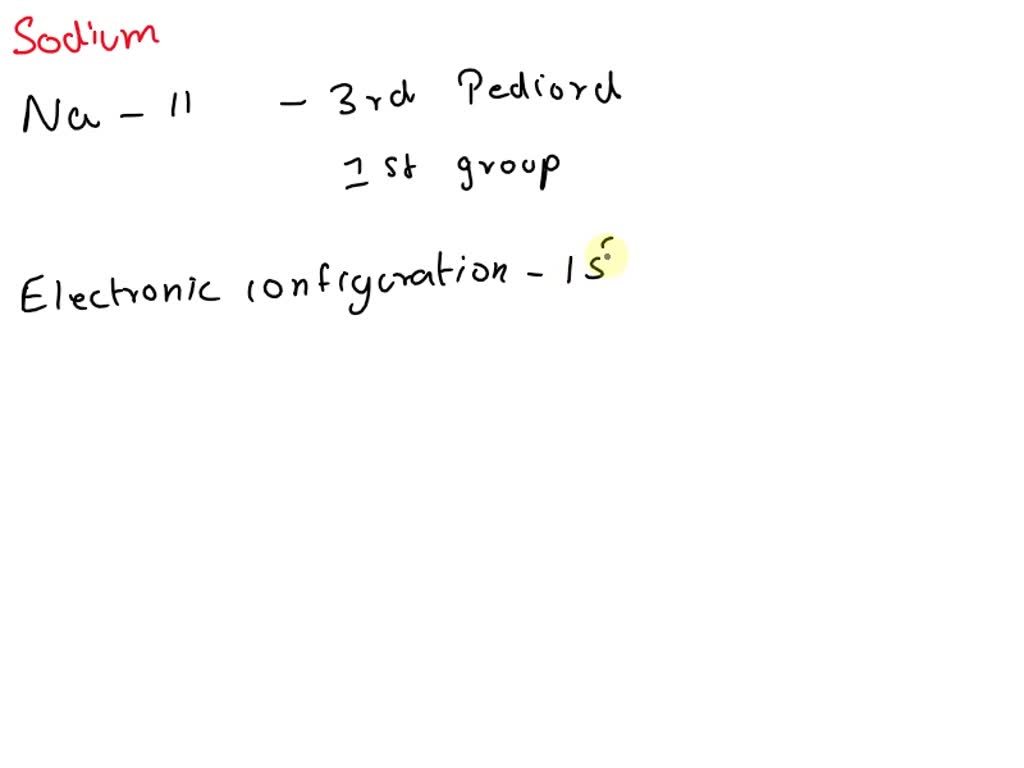 Sodium
Na - 11 - 3rd Pediord
1st group
Electronic configuration - 1s